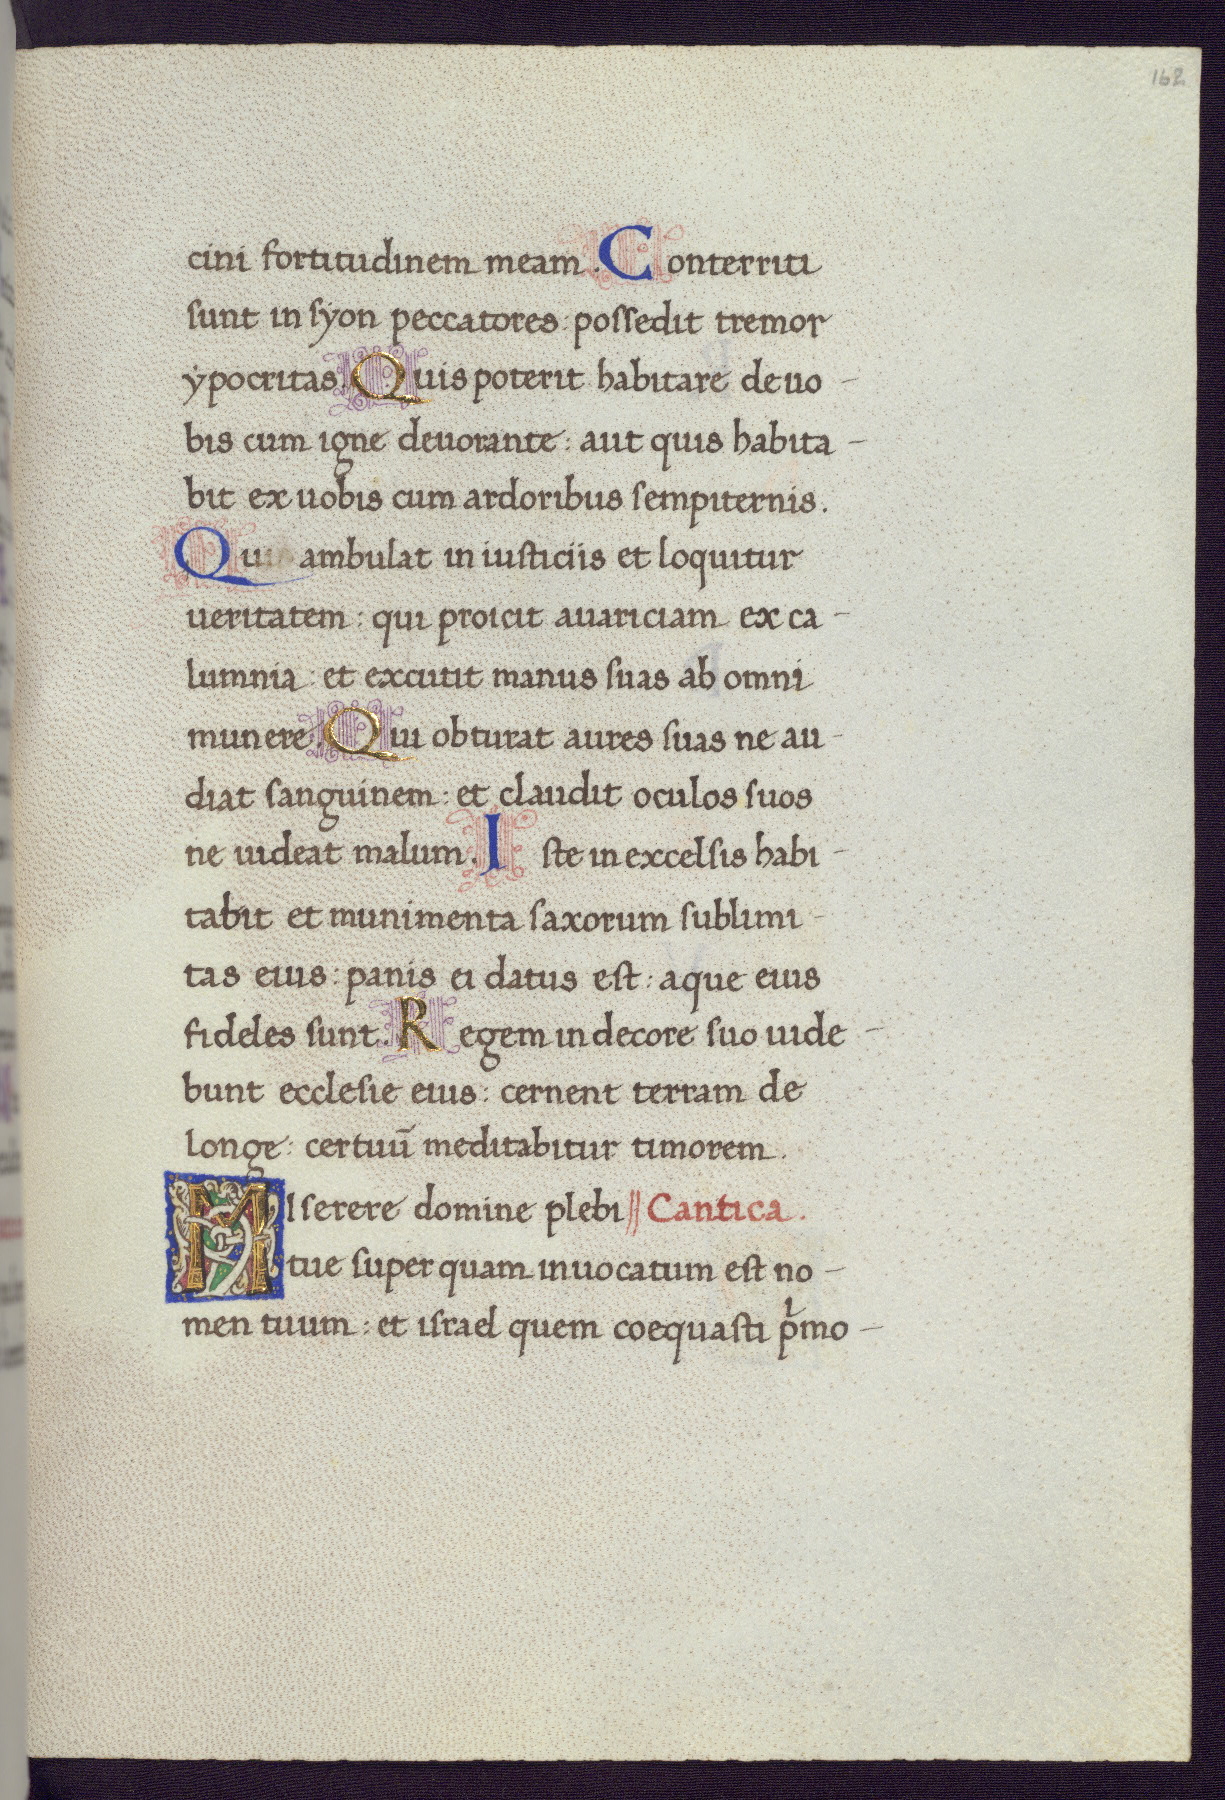 162
cini fortitudinem meam. Conterriti
sunt in syon peccatores: possedit tremor
ypocritas. Quis poterit habitare de uo-
bis cum igne deuorante: aut quis habita-
bit ex uobis cum ardoribus sempiternis.
Qui ambulat in iusticiis et loquitur
ueritatem: qui proicit auariciam ex ca-
lumnia: et excutit manus suas ab omni
munere. Qui obturat aures suas ne au-
diat sanguinem: et claudit oculos suos
ne uideat malum. Iste in excelsis habi-
tabit et munimenta saxorum sublimi-
tas eius: panis ei datus est: aque eius
fideles sunt. Regem in decore suo uide-
bunt ecclesie eius: cernent terram de
longe: cor tuū meditabitur timorem.
MIserere domine plebi Cantica.
tue super quam inuocatum est no-
men tuum: et israel quem coequasti pͥmo-